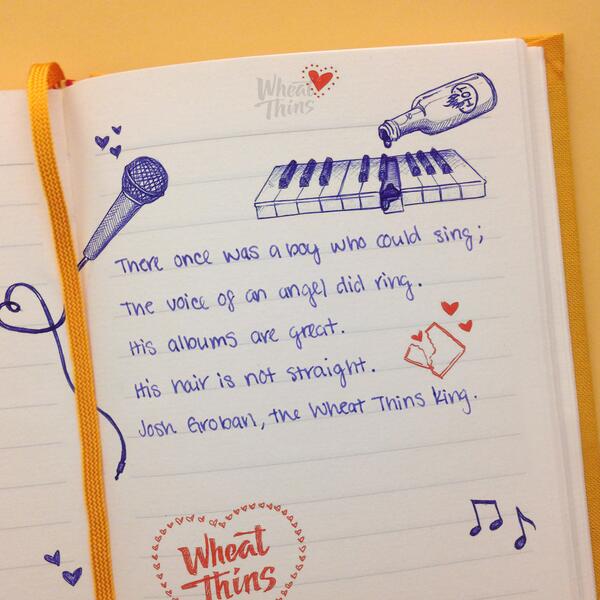 Wheat
Thins
HOT
There once was a boy who could sing;
The voice of an angel did ring.
His albums are great.
His hair is not straight.
Josh Groban, the Wheat Thins king.
Wheat
Thins